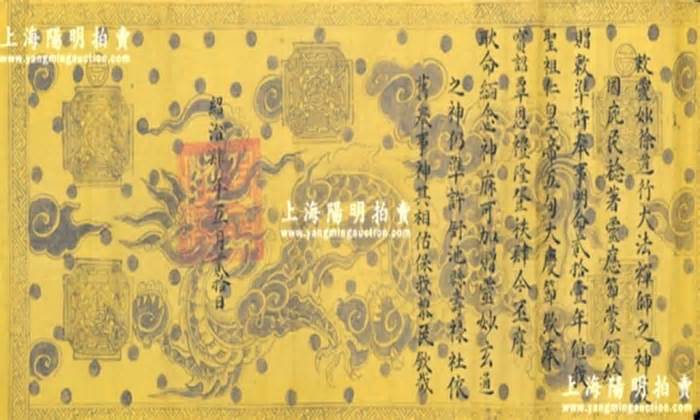 敕靈妙徐道行大法禪師之神
国庇民稔著靈應節蒙頒給
贈敕準許奉事明命貳拾壹年值我
聖祖仁皇帝五旬大慶節欽奉
寶詔覃恩禮隆登秩肆今丕膺
耿命緬念神庥可加贈靈妙玄通
之神仍準許池縣壽祿社依
舊奉事神其相佑保我黎民欽哉
紹治年五月貳拾日
上海陽明拍賣
www.yangmingauction.com
上海陽明拍賣
www.yangmingauction.com
上海陽明拍賣
www.yangmingauction.com